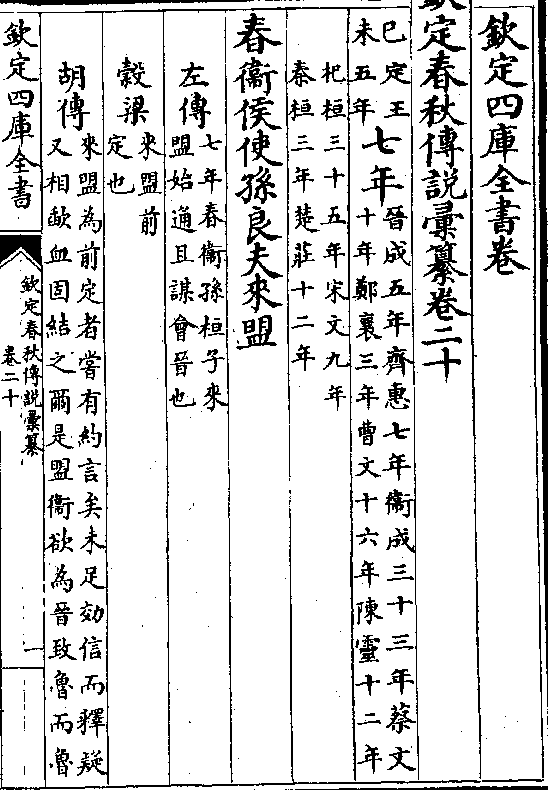 欽定四庫全書卷
欽定春秋傳說彙纂卷二十
己定王
未五年
七年
晉成五年齊惠七年衛成三十三年蔡文
十年鄭襄三年曹文十六年陳靈十二年
杞桓三十五年宋文九年
秦桓三年楚莊十二年
春衛侯使孫良夫來盟
左傳
七年春衛孫桓子來
盟始通且謀會晉也
榖梁
來盟前
定也
胡傳
來盟為前定者嘗有約言矣未足効信而釋疑
又相歃血固結之爾是盟衛欲為晉致魯而魯
欽定四庫全書
欽定春秋傳說彙纂
卷二十
一